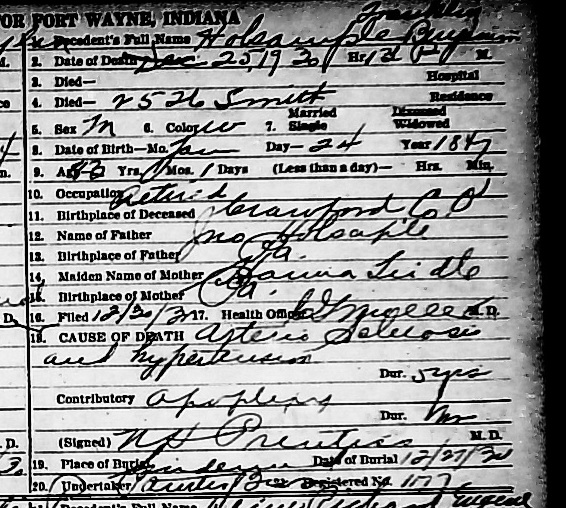 FOR FORT WAYNE, INDIANA
Franklin
Decedent's Full Name Holsapple Benjamin
2. Date of Death Dec 25, 1930 Hr. 12 P M.
3. Died— Hospital
4. Died— 2526 Smith Residence
Married Divorced
5. Sex M 6. Color W 7. Single Widowed
8. Date of Birth—Mo. Jan Day— 24 Year 1847
9. Age 83 Yrs. Mos. 1 Days (Less than a day)— Hrs. Min.
10. Occupation Retired
11. Birthplace of Deceased Crawford Co O
12. Name of Father Jno Holsaple
13. Birthplace of Father Pa
14. Maiden Name of Mother Lindle
15. Birthplace of Mother Pa
D. 16. Filed 12/30/30 17. Health Officer M.D.
18. CAUSE OF DEATH Arterio Sclerosis
and hypertension
Dur. 5 yrs
Contributory apoplexy
Dur.
D. (Signed) N H Prentiss M.D.
19. Place of Burial Lindenwood Date of Burial 12/27/30
20. Undertaker Registered No. 1077
Decedent's Full Name Eugene